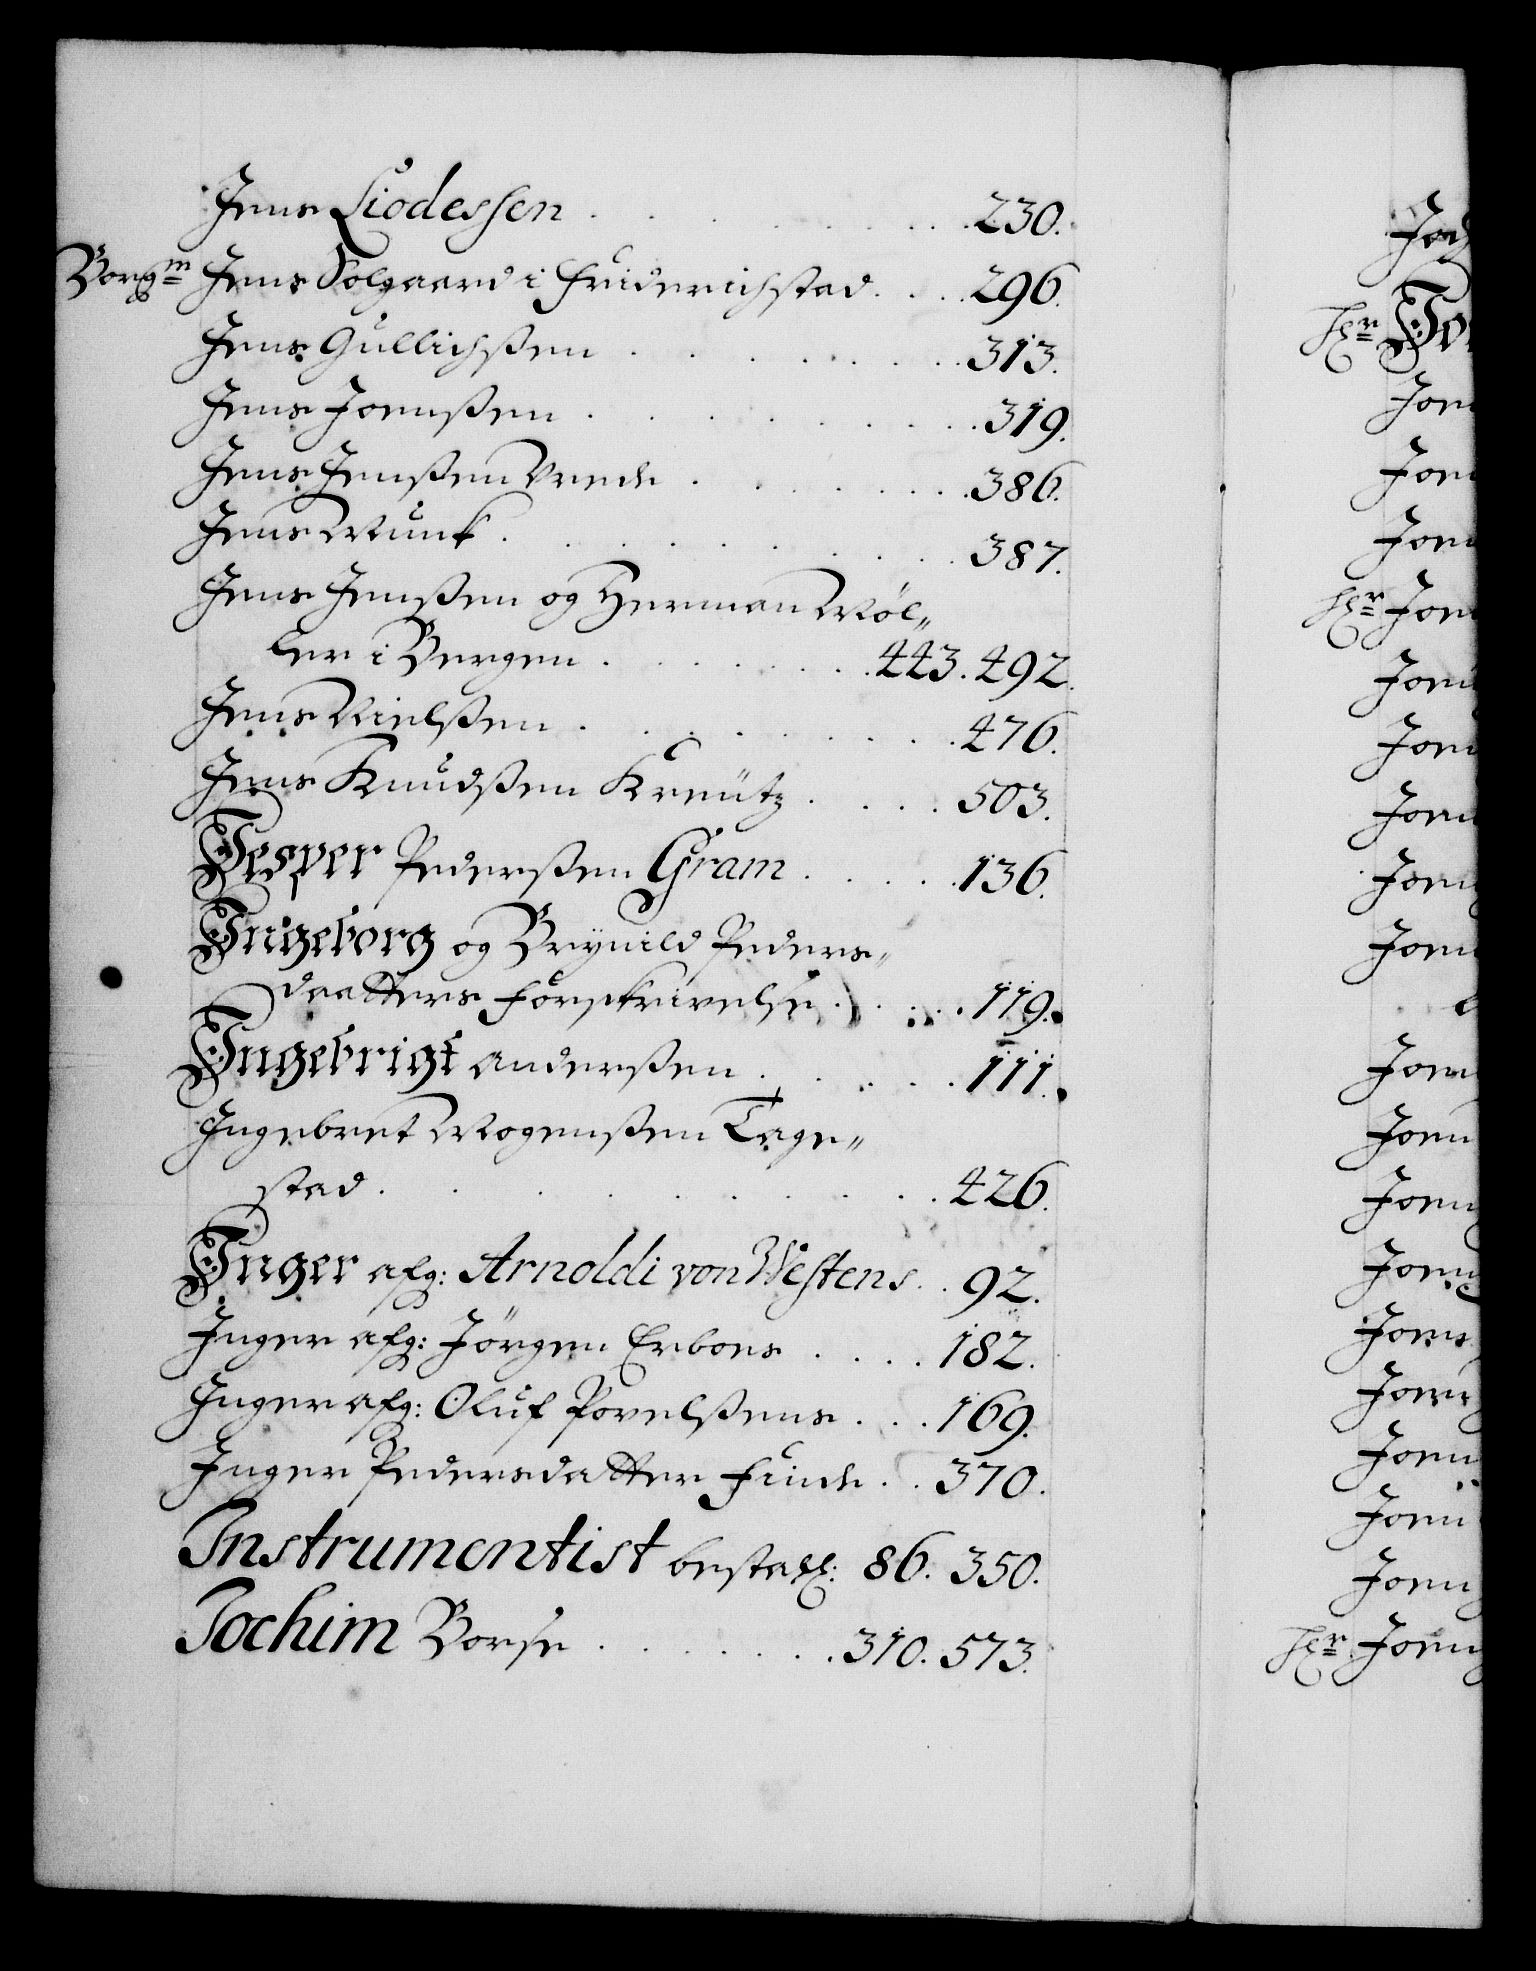 Jens Liodessen . . . . . . . 230.
Borgm Jens Solgaard i Friderichstad . . . 296.
Jens Gullichßen . . . . . . . 313.
Jens Joenßen . . . . . . . 319.
Jens Jenßen Wrede . . . . . . 386.
Jens Munk . . . . . . . . 387.
Jens Jenßen og Herman Möl„
ler i Bergen . . . . . . 443. 492.
Jens Nielßen . . . . . . . 476.
Jens Knudßen Kreütz . . . . 503.
Jesper Pederßen Gram . . . . 136.
Ingeborg og Brynild Peders„
daatters Forskrivelse . . . . 119.
Ingebrigt Anderßen . . . . . 111.
Ingebret Mogenßen Tage„
stad . . . . . . . . . 426.
Inger afg: Arnoldi von Westens . . 92.
Inger afg: Jörgen Erboes . . . . 182.
Inger afg: Oluf Povelßens . . . 169.
Inger Pedersdatter Finde . . 370.
Instrumentist bestall: 86. 350.
Jochim Borse . . . . . 310. 573.
Joch
Hr Jo
Jon
Jon
Jon
Hr Jon
Jon
Jon
Jon
Jon
Jon
Jon
Jon
Jon
Jon
Jons
Jon
Jon
Jon
Jon
Hr Jon